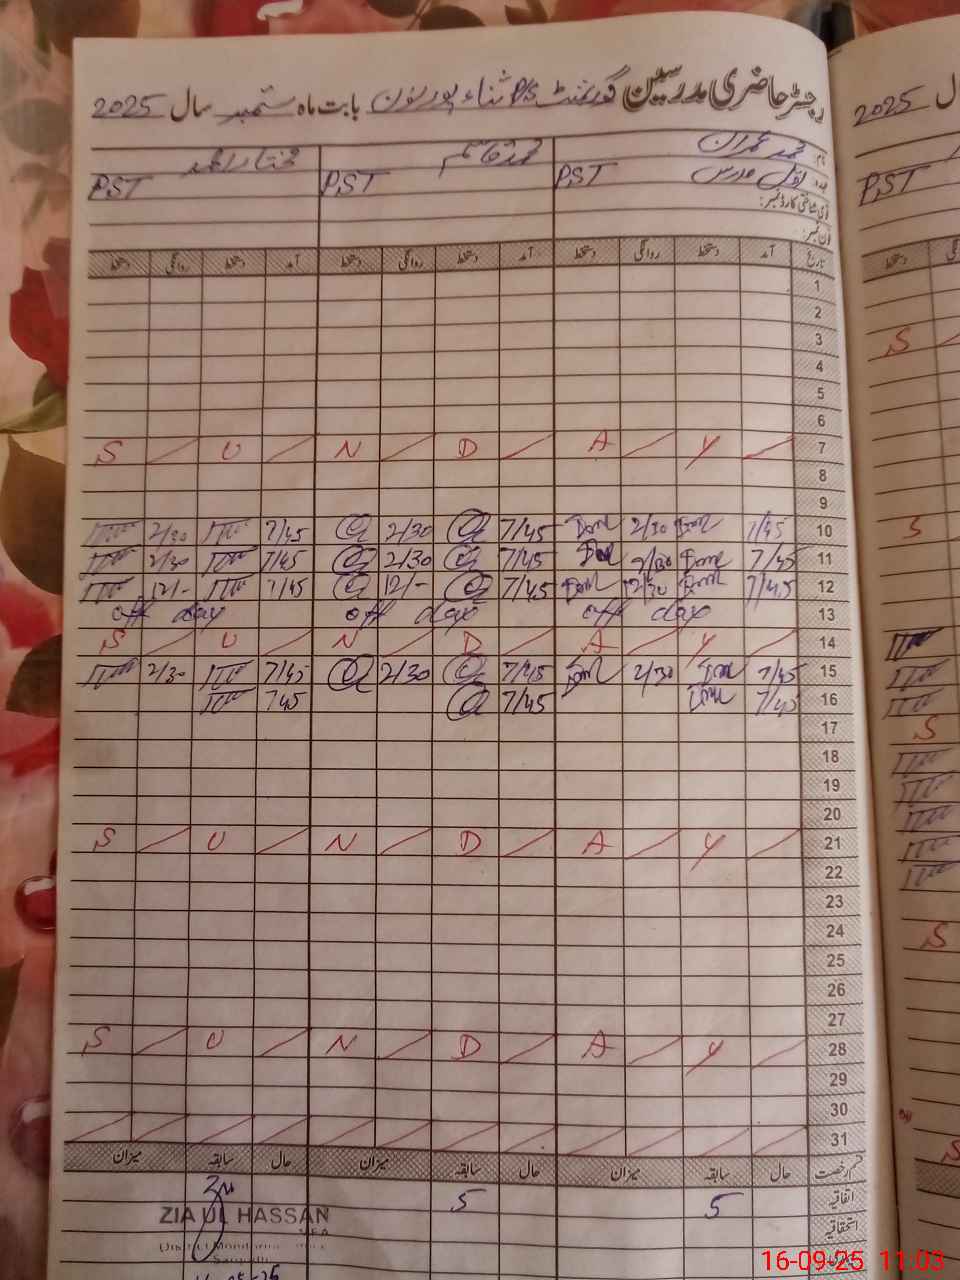 رجسٹر حاضری مدرسین گورنمنٹ P/S ثناء پور سٹون بابت ماہ ستمبر سال 2025
نام: محمد عمران محمد قاسم مختار احمد
عہدہ: اول مدرس PST PST PST
قومی شناختی کارڈ نمبر:
فون نمبر:
تاریخ آمد دستخط روانگی دستخط آمد دستخط روانگی دستخط آمد دستخط روانگی دستخط
1
2
3
4
5
6
S U N D A Y 7
8
9
2/30 7/45 2/30 7/45 2/30 7/45 10
2/30 7/45 2/30 7/45 2/30 7/45 11
12/- 7/45 12/- 7/45 12/30 7/45 12
off day off day off day 13
S U N D A Y 14
2/30 7/45 2/30 7/45 2/30 7/45 15
745 7/45 7/45 16
17
18
19
20
S U N D A Y 21
22
23
24
25
26
27
S U N D A Y 28
29
30
31
قسم رخصت حال سابقہ میزان حال سابقہ میزان حال سابقہ میزان
اتفاقیہ 5 5
استحقاقیہ
ZIA UL HASSAN
16-09-25 11:03
2025 سال
PST
S
S
S
S
S